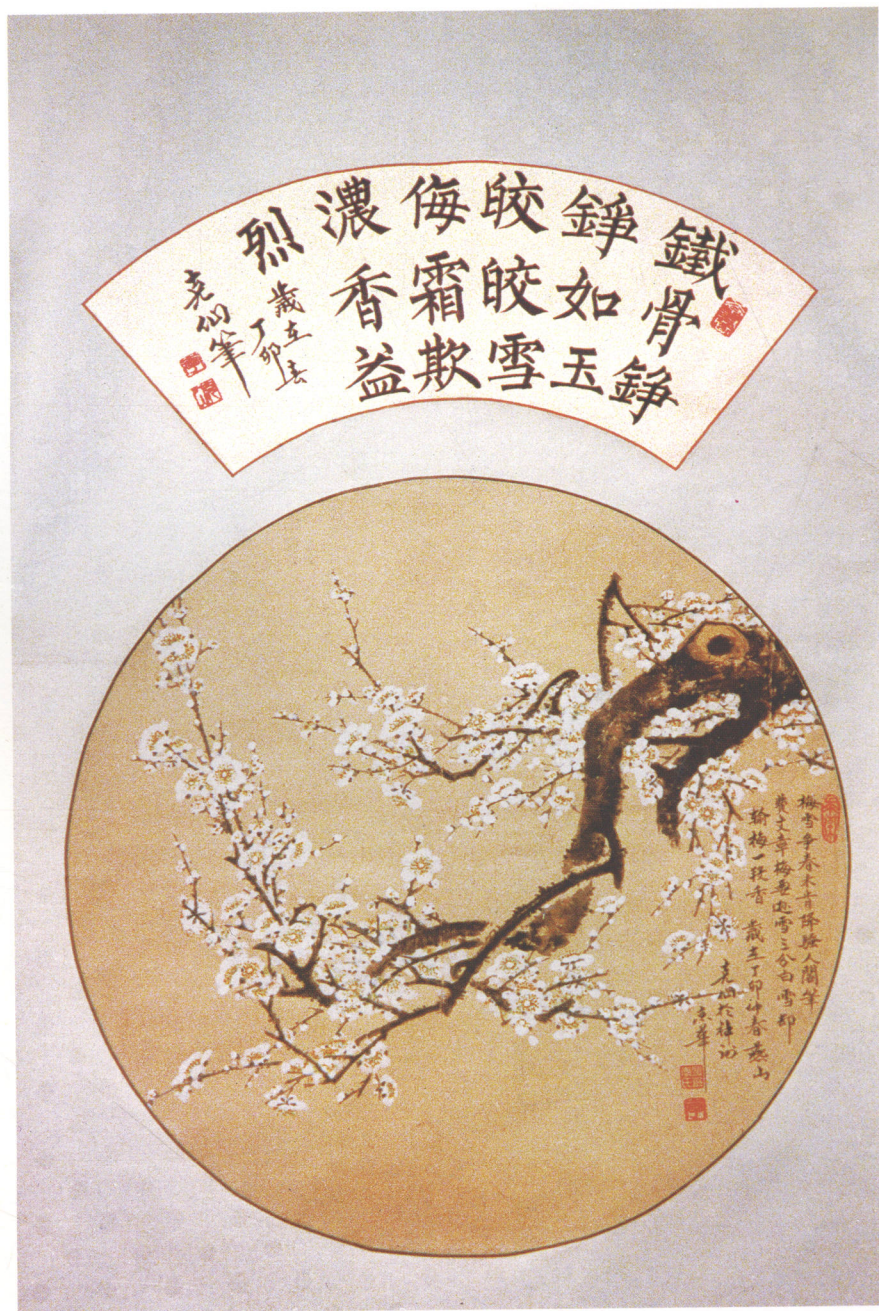 鐵骨錚
錚如玉
皎皎雪
侮霜欺
濃香益
烈
歲在春
丁卯
克仙筆
梅雪爭春未肯降騷人閣筆
費文章梅須遜雪三分白雪却
輸梅一段香 歲在丁卯仲春燕山
克仙於津沽